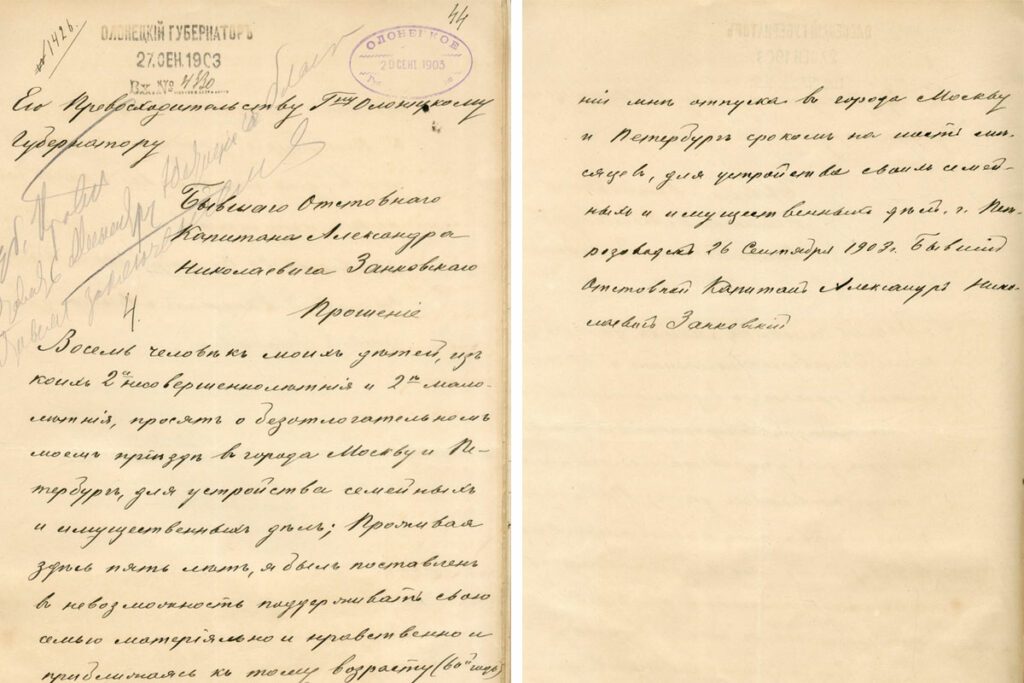 № 1426.
44
ОЛОНЕЦКІЙ ГУБЕРНАТОРЪ
27. СЕН. 1903
Вх. №
ОЛОНЕЦКОЕ
20 СЕНТ. 1903
Его Превосходительству Гну Олонецкому
Губернатору
Бывшаго Отставнаго
Капитана Александра
Николаевича Занковскаго
4.
Прошеніе
Восемь человѣкъ моихъ дѣтей, изъ
коихъ 2е несовершеннолѣтнія и 2е мало-
лѣтнія, просятъ о безотлогательномъ
моемъ пріѣздѣ въ города Москву и Пе-
тербургъ, для устройства семейныхъ
и имущественныхъ дѣлъ; Проживая
здѣсь пять лѣтъ, я былъ поставленъ
въ невозможность поддерживать свою
семью матеріяльно и нравственно и
приближаясь къ тому возрасту (60й годъ)
ній мнѣ отпуска въ города Москву
и Петербургъ срокомъ на шесть мѣ-
сяцевъ, для устройства своихъ семей-
ныхъ и имущественныхъ дѣлъ. г. Пет-
розоводскъ 26 Сентября 1903 г. Бывшій
Отставной Капитанъ Александръ Нико-
лаевичъ Занковскій